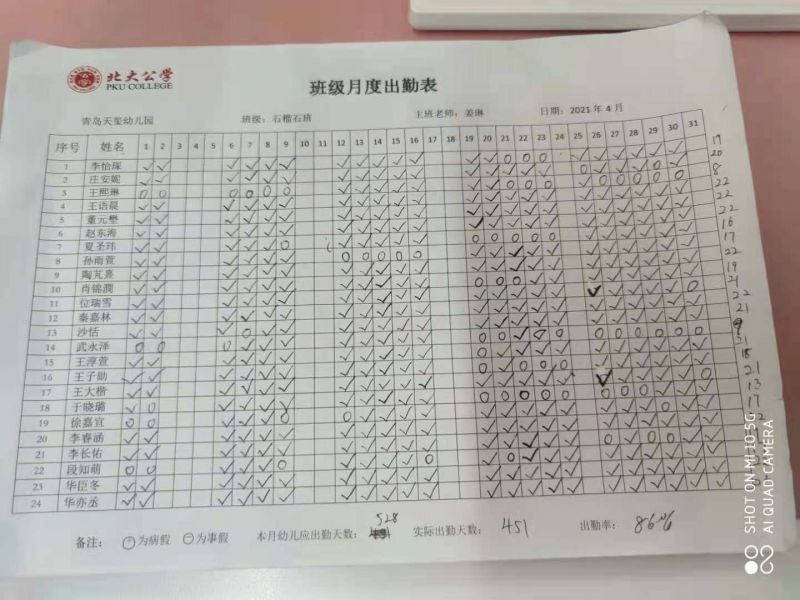 北大公学
PKU COLLEGE
班级月度出勤表
青岛天玺幼儿园 班级：石榴石班 主班老师：姜琳 日期：2021年4月
序号 姓名 1 2 3 4 5 6 7 8 9 10 11 12 13 14 15 16 17 18 19 20 21 22 23 24 25 26 27 28 29 30 31
1 李怡琛 19
2 庄安妮 20
3 王熙琳 8
4 王语晨 22
5 董元懋 22
6 赵东海 22
7 夏圣玮 16
8 孙雨萱 17
9 陶芃熹 22
10 肖锦润 19
11 位瑞雪 21
12 秦嘉林 22
13 沙恬 21
14 武永泽
15 王淳萱
16 王子勋 18
17 王大楷 21
18 于晓璐 13
19 徐嘉宜 17
20 李睿涵
21 李长佑
22 段知萌
23 华臣冬
24 华亦丞
备注： 为病假 为事假 本月幼儿应出勤天数： 528 实际出勤天数： 451 出勤率： 86%
SHOT ON MI 10 5G
AI QUAD CAMERA